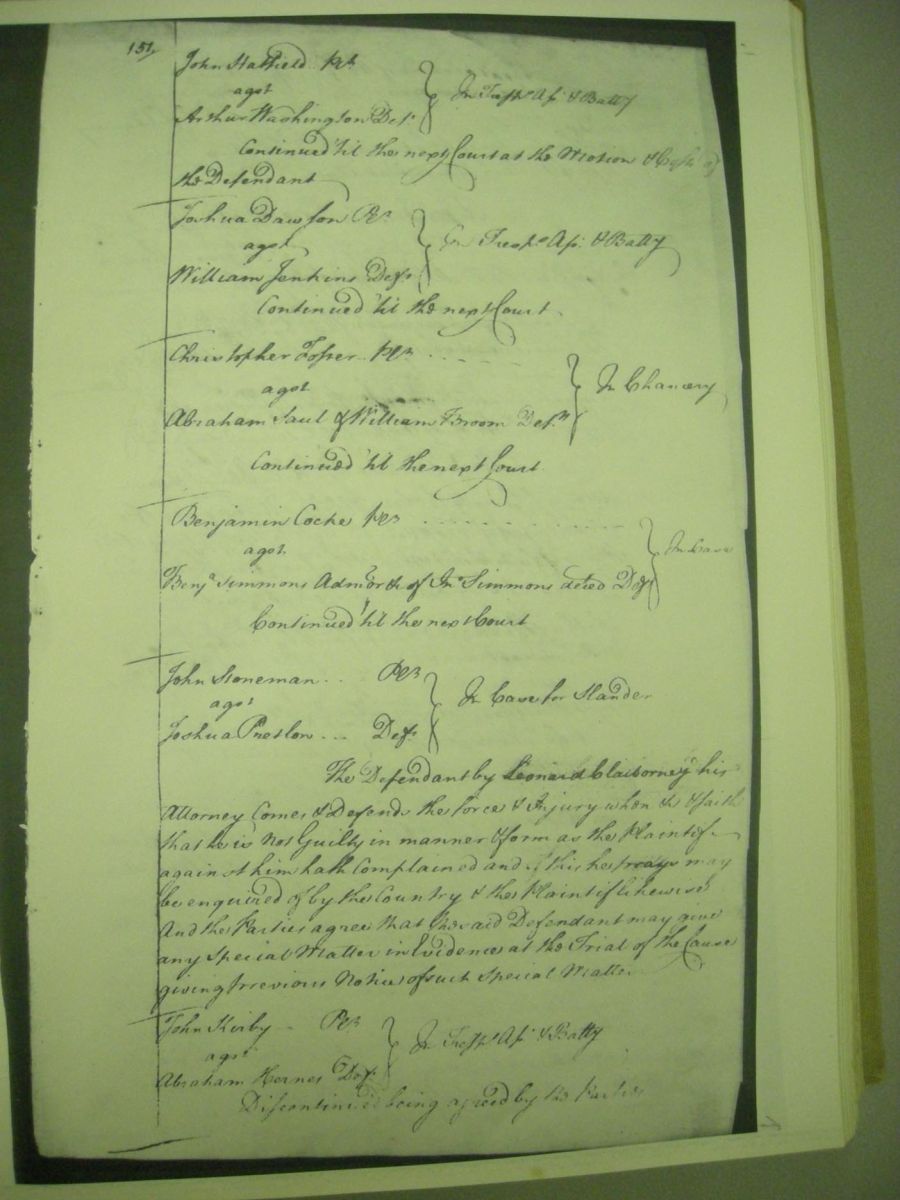 151
John Hatfield Plt
agst } In Tresps Asst & Batty
Arthur Washington Deft
Continued 'til the next Court at the Motion & Costs of
the Defendant
Joshua Dawson Plt
agst } In Tresps Asst & Batty
William Jenkins Deft
Continued 'til the next Court
Christopher Foster Plt
agst } In Chancery
Abraham Saul & William Broom Defts
Continued 'til the next Court
Benjamin Cocke Plt
agst } In Case
Benja Simmons Admor &c of Jno Simmons deced Deft
Continued 'til the next Court
John Stoneman ... Plt
agst } In Case for Slander
Joshua Preston ... Deft
The Defendant by Leonard Claiborne his
Attorney Comes & Defends the force & Injury when &c & saith
that he is Not Guilty in manner & form as the Plaintif
against him hath Complained and of this he prays may
be enquired of by the Country & the Plaintif likewise
And the Parties agree that the said Defendant may give
any Special Matter in Evidence at the Trial of the Cause
giving Previous Notice of such Special Matter
John Kirby Plt
agst } In Tresps Asst & Batty
Abraham Hernes Deft
Discontinued being agreed by the Parties